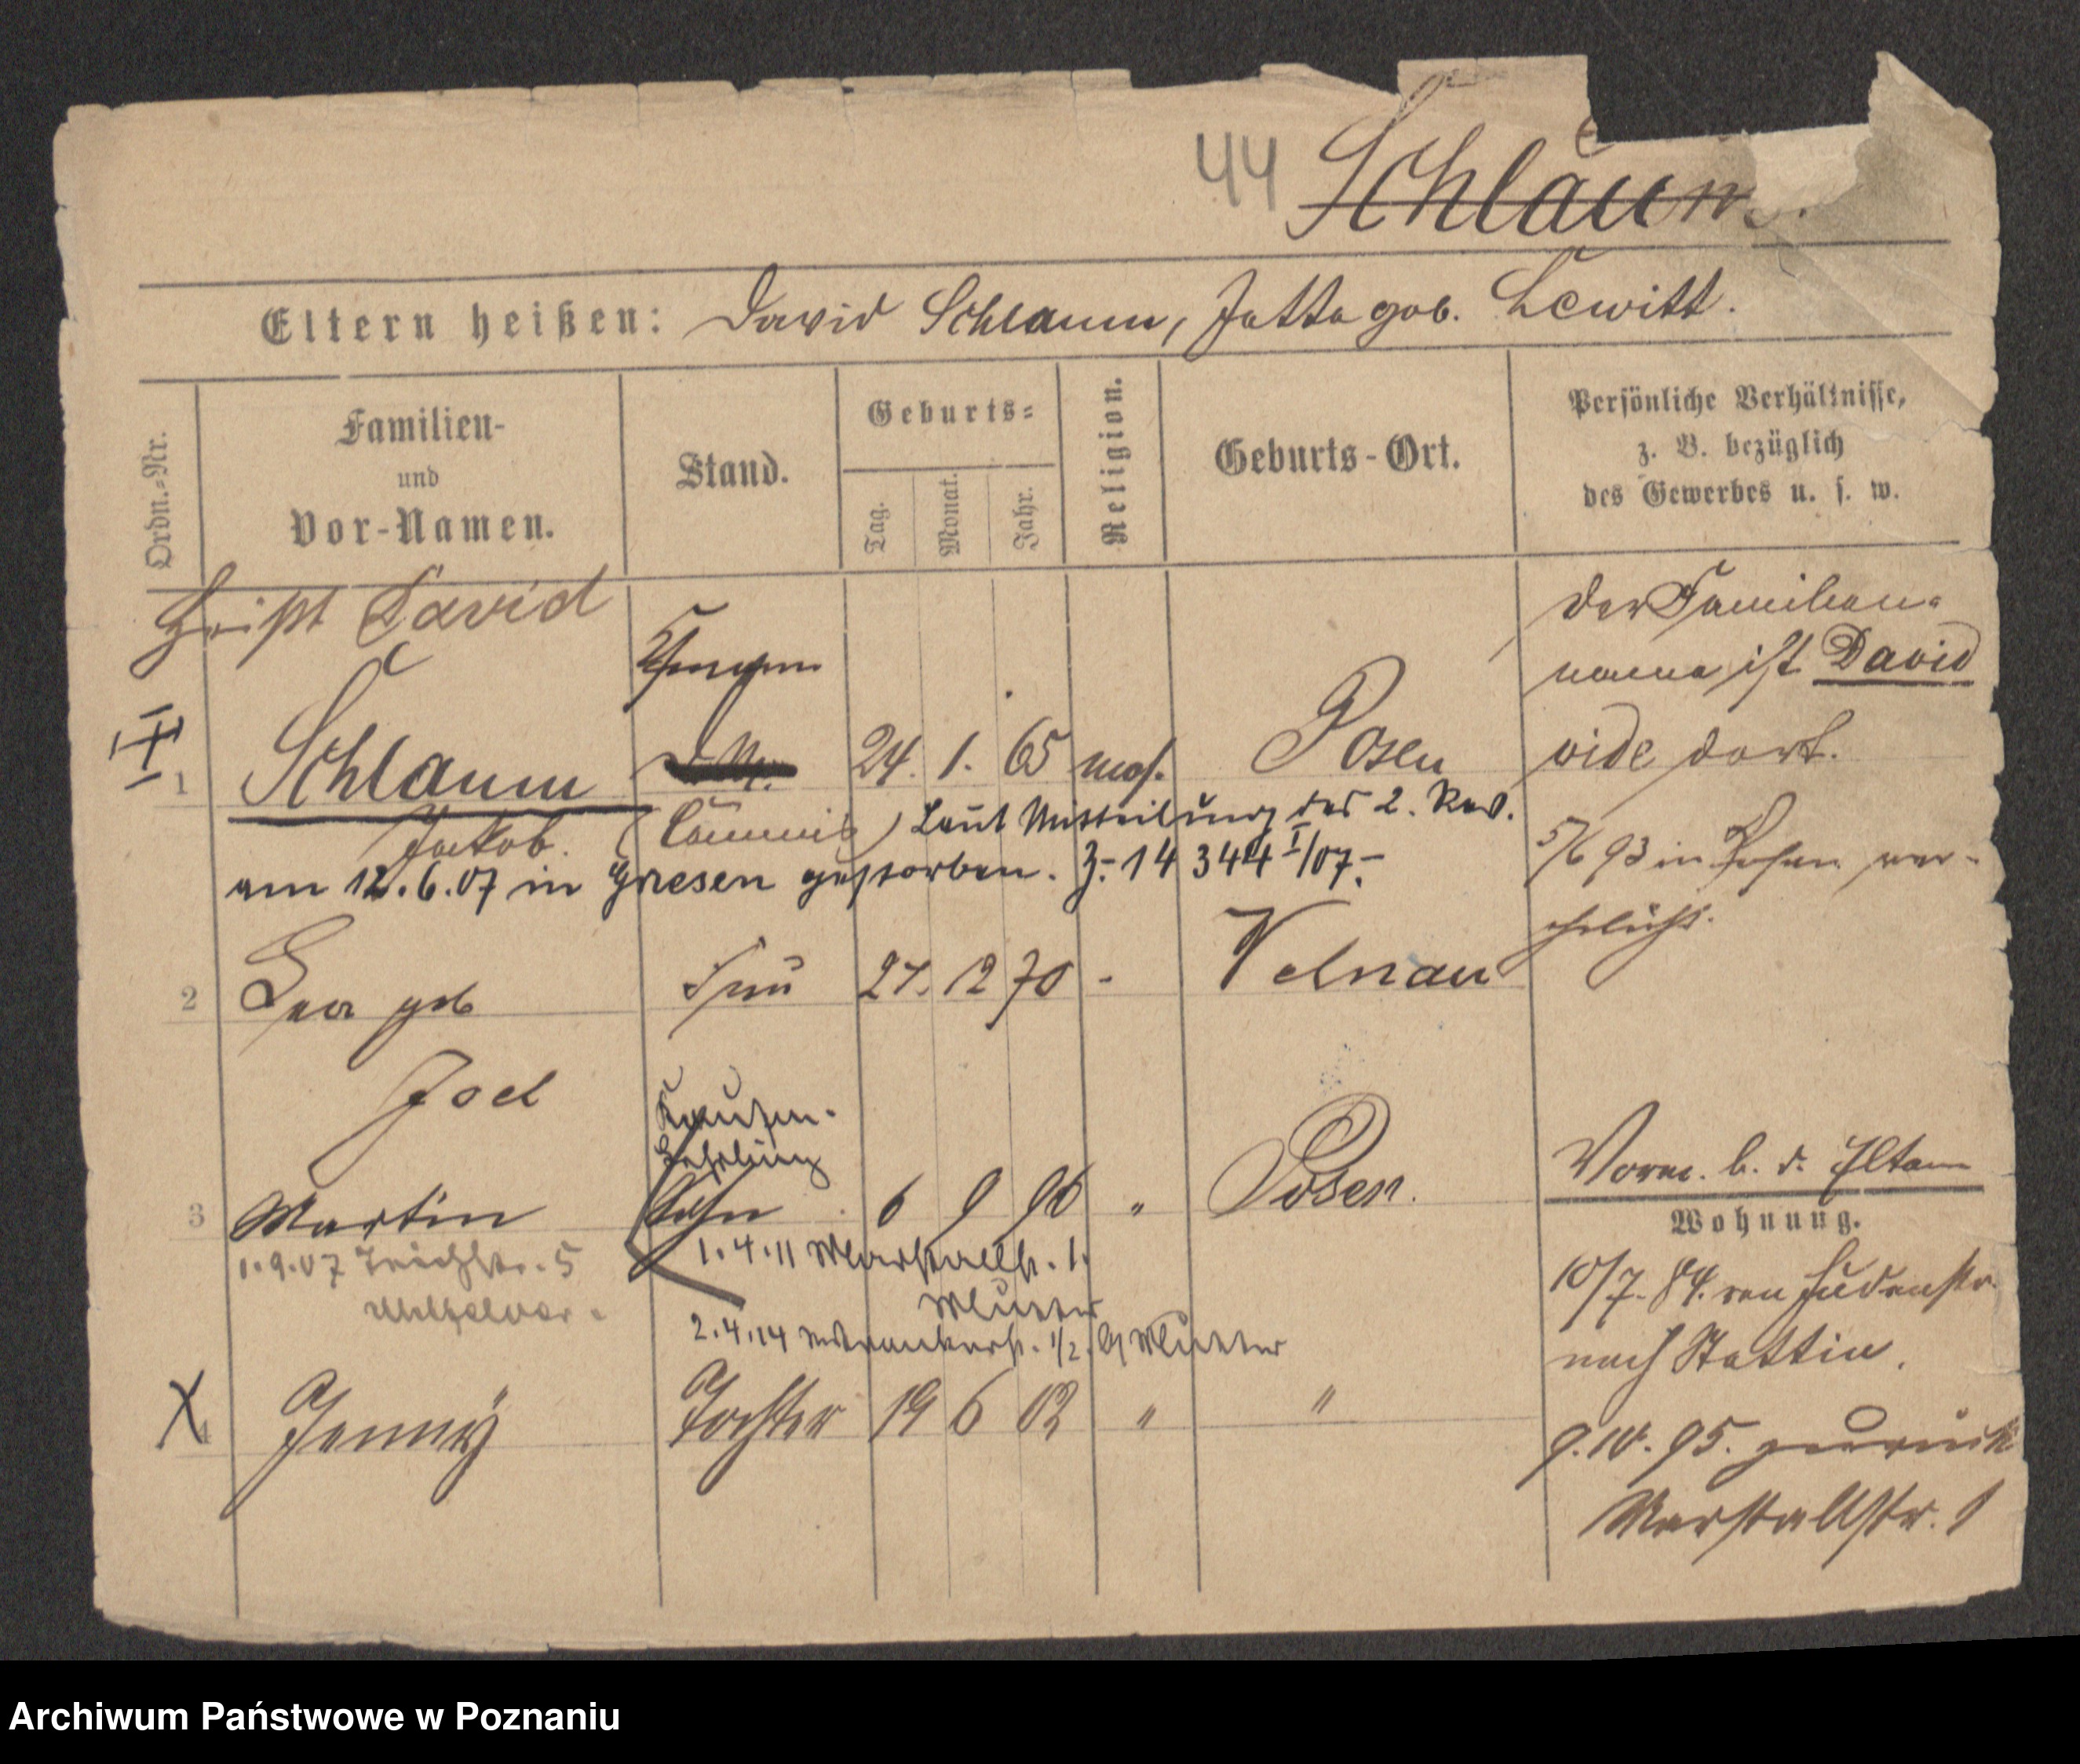 44 Schlaum.
Eltern heißen: David Schlaum, Jette geb. Lewitt.
Ordn.-Nr.
Familien-
und
Vor-Namen.
Stand.
Geburts-
Tag.
Monat.
Jahr.
Religion.
Geburts-Ort.
Persönliche Verhältnisse,
z. B. bezüglich
des Gewerbes u. s. w.
heißt David
Der Familien-
name ist David
vide dort.
1 Schlaum 24. 1. 65 mos. Posen
Jakob. (Commis) Laut Mitteilung des 2. Rev.
am 12.6.07 in Gnesen gestorben. Z.- 14 344 I/07.-
5/6 93 in Posen ver-
ehelicht.
2 Lea geb Frau 27. 12 70 - Velnau
Joel
Kaufm.
Lehrling
3 Martin Sohn 6 9 96 " Posen.
1.9.07 Teichstr. 5
1.4.11 Marstallstr. 1.
Mutter
2.4.14 1/2. Mutter
Jenny Tochter 19 6 02 " "
Vorm. b. d. Eltern
Wohnung.
10/7. 84. von Judenstr.
nach Stettin.
9.10.95. zurück
Marstallstr. 1
Archiwum Państwowe w Poznaniu